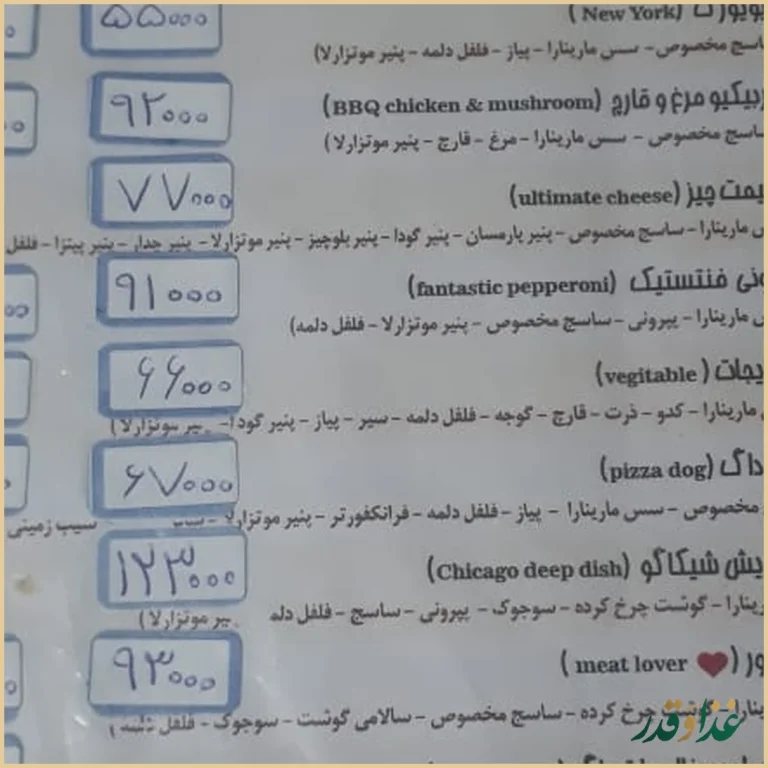 (New York) ۵۵۰۰۰
ساسج مخصوص - سس مارینارا - پیاز - فلفل دلمه - پنیر موتزارلا)
مرغ و قارچ (BBQ chicken & mushroom) ۹۲۰۰۰
ساسج مخصوص - سس مارینارا - مرغ - قارچ - پنیر موتزارلا)
چیز (ultimate cheese) ۷۷۰۰۰
مارینارا - ساسج مخصوص - پنیر پارمسان - پنیر گودا - پنیر بلوچیز - پنیر موتزارلا - پنیر چدار - پنیر پیتزا - فلفل
فنتستیک (fantastic pepperoni) ۹۱۰۰۰
مارینارا - پپرونی - ساسج مخصوص - پنیر موتزارلا - فلفل دلمه)
(vegitable) ۶۶۰۰۰
مارینارا - کدو - ذرت - قارچ - گوجه - فلفل دلمه - سیر - پیاز - پنیر گودا - موتزارلا)
داگ (pizza dog) ۶۷۰۰۰
مخصوص - سس مارینارا - پیاز - فلفل دلمه - فرانکفورتر - پنیر موتزارلا - سیب زمینی
شیکاگو (Chicago deep dish) ۱۲۳۰۰۰
گوشت چرخ کرده - سوجوک - پپرونی - ساسج - فلفل موتزارلا)
(meat lover) ۹۳۰۰۰
گوشت چرخ کرده - ساسج مخصوص - سالامی گوشت - سوجوک - فلفل دلمه)
غذا و قدر